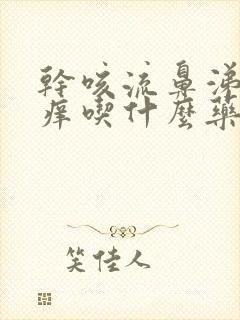 幹咳流鼻涕
癢喫什麼藥
笑佳人